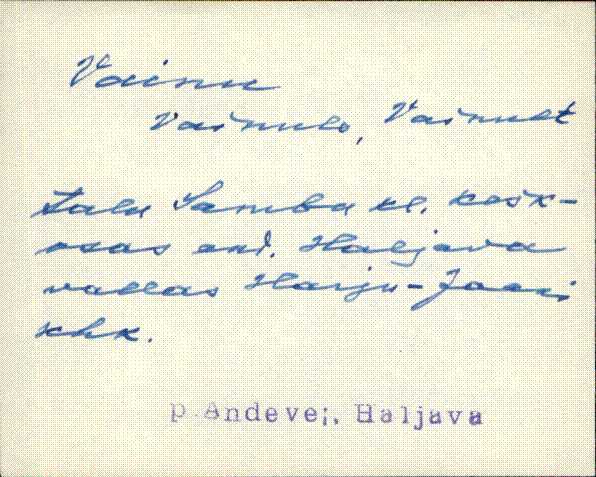 Vainu
Vainule, Vainult
Talu Sambu kl. kesk-
osas end. Haljava
vallas Harju-Jaani
khk.
P. Andevei, Haljava